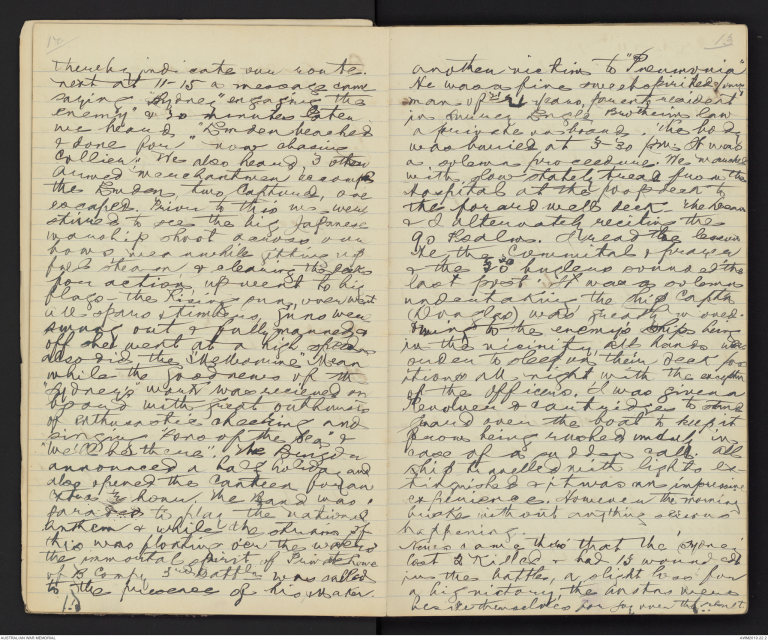 thereby indicate our route.
next at 11-15 a message came
saying "Sydney" engaging the
enemy" & 30 minutes later
we heard "Emden beached
& done for" now chasing
Collier". We also heard, 3 other
Armed merchantmen
the Emden, two Captured, one
escaped. Prior to this we were
stirred to see the big Japanese
warship shoot across our
bows meanwhile getting up
full steam, & clearing the decks
for action, up went to big
flags the Rising sun, over went
all spars & timbers, guns were
swung out & fully manned &
off she went at a high speed
also did the "Melbourne" Mean
while the good news of the
"Sydney's" work was received on
board with great outbursts
of enthusiastic cheering and
singing "Sons of the Sea, &
"We'll be there". The Brigdr
announced a half holiday and
also opened the Canteen for an
extra ½ hour. The Band was
to play the national
anthem & while the strains of
this was floating o'er the waters
the immortal spirit of
of B Compy 3rd Battln was called
to the presence of his Maker.
13
another victim to "Pneumonia"
He was a fine sweet spirited young
man of 21 years, parents resident
in Surrey England Brother in law
a private on board. The body
was buried at 5-30 pm. It was
a solemn procedure. We marched
with slow stately tread from the
Hospital at the poop deck to
the forward well deck. The Dean
& I alternately reciting the
90 Psalm. I read the lesson
He the Committal & prayer
& the buglers sounded the
last post. It was a solemn
undertaking the ship Captn
(Douglas) was greatly moved.
Owing to the enemy's ships being
in the vicinity all hands were
ordered to sleep on their deck po
sitions all night with the exception
of the officers. I was given a
Revolver & cartridges to stand
guard over the boat to keep it
from being rushed in
case of a sudden call all
ship travelled with lights ex-
tinguished & it was an impressive
experience. However the morning
broke without anything serious
happening.
News came thro' that the Sydney
lost 2 Killed & had 13 wounded
in the battle, a slight loss for
a big victory, the Anstas were
beside themselves for joy over the
AUSTRALIAN WAR MEMORIAL